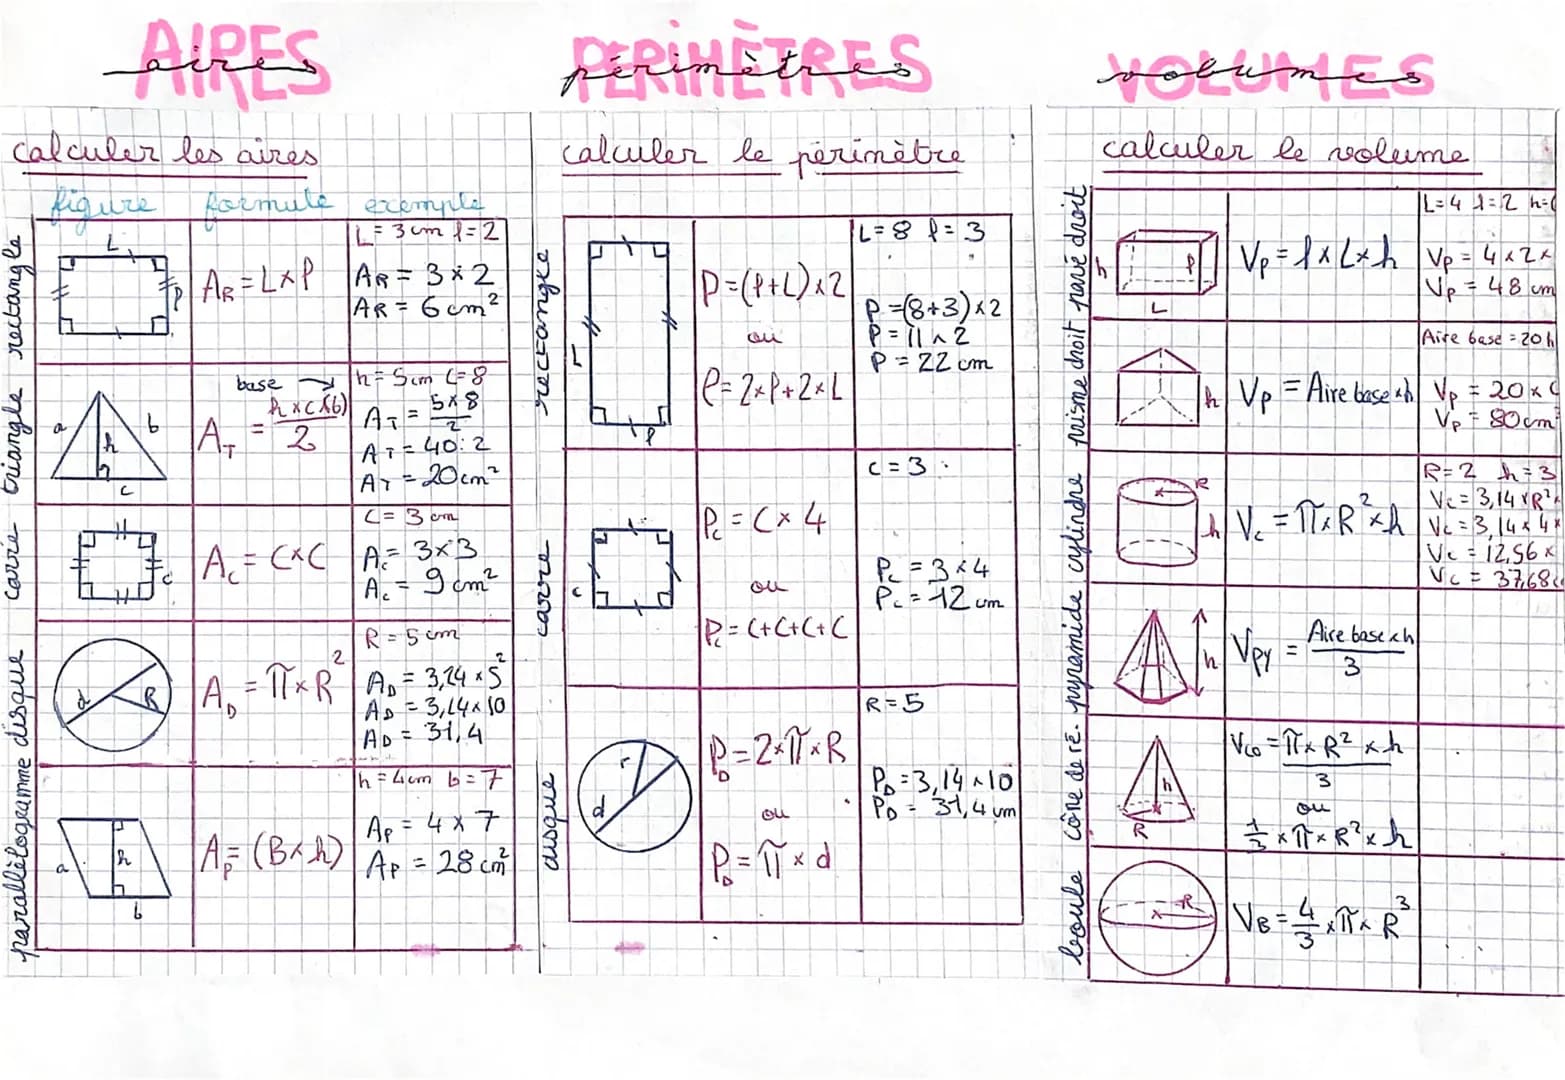 AIRES
aires
calculer les aires
figure formule exemple
rectangle
L
l
AR = L×l
L = 3cm l = 2
AR = 3 × 2
AR = 6 cm²
triangle
a
b
h
c
base →
AT = h×c(b) / 2
h = 5cm C = 8
AT = 5×8 / 2
AT = 40 : 2
AT = 20cm²
carré
c
Ac = C×C
C = 3 cm
Ac = 3×3
Ac = 9 cm²
disque
d
R
AD = π×R²
R = 5 cm
AD = 3,14 × 5²
AD = 3,14 × 10
AD = 31,4
parallèlogramme
a
h
b
Ap = (B×h)
h = 4cm b = 7
Ap = 4 × 7
Ap = 28 cm²
PÉRIMÈTRES
périmètres
calculer le périmètre
rectangle
L
l
P = (l+L)×2
ou
P = 2×l+2×L
L = 8 l = 3
P = (8+3)×2
P = 11 × 2
P = 22 cm
carré
c
Pc = C × 4
ou
Pc = C+C+C+C
C = 3
Pc = 3 × 4
Pc = 12 cm
disque
r
d
PD = 2×π×R
ou
PD = π × d
R = 5
PD = 3,14 × 10
PD = 31,4 cm
VOLUMES
volumes
calculer le volume
pavé droit
h
l
L
Vp = l×L×h
L = 4 l = 2 h =
Vp = 4×2×
Vp = 48 cm
prisme droit
h
Vp = Aire base×h
Aire base = 20 h
Vp = 20×
Vp = 80cm
cylindre
R
h
Vc = π×R²×h
R = 2 h = 3
Vc = 3,14×R²×
Vc = 3,14×4×
Vc = 12,56×
Vc = 37,68c
pyramide
h
Vpy = Aire base×h / 3
cône de ré.
h
R
Vco = π×R²×h / 3
ou
1/3 ×π×R²×h
boule
R
VB = 4/3 ×π×R³